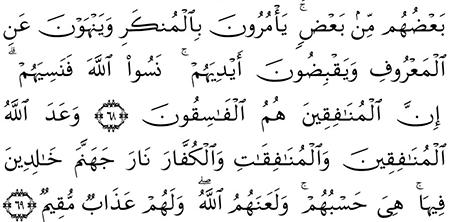 بَعْضُهُم مِّنۢ بَعْضٍۚ يَأْمُرُونَ بِٱلْمُنكَرِ وَيَنْهَوْنَ عَنِ
ٱلْمَعْرُوفِ وَيَقْبِضُونَ أَيْدِيَهُمْۚ نَسُوا۟ ٱللَّهَ فَنَسِيَهُمْۗ
إِنَّ ٱلْمُنَٰفِقِينَ هُمُ ٱلْفَٰسِقُونَ ﴿٦٨﴾ وَعَدَ ٱللَّهُ
ٱلْمُنَٰفِقِينَ وَٱلْمُنَٰفِقَٰتِ وَٱلْكُفَّارَ نَارَ جَهَنَّمَ خَٰلِدِينَ
فِيهَاۚ هِىَ حَسْبُهُمْۚ وَلَعَنَهُمُ ٱللَّهُۖ وَلَهُمْ عَذَابٌ مُّقِيمٌ ﴿٦٩﴾